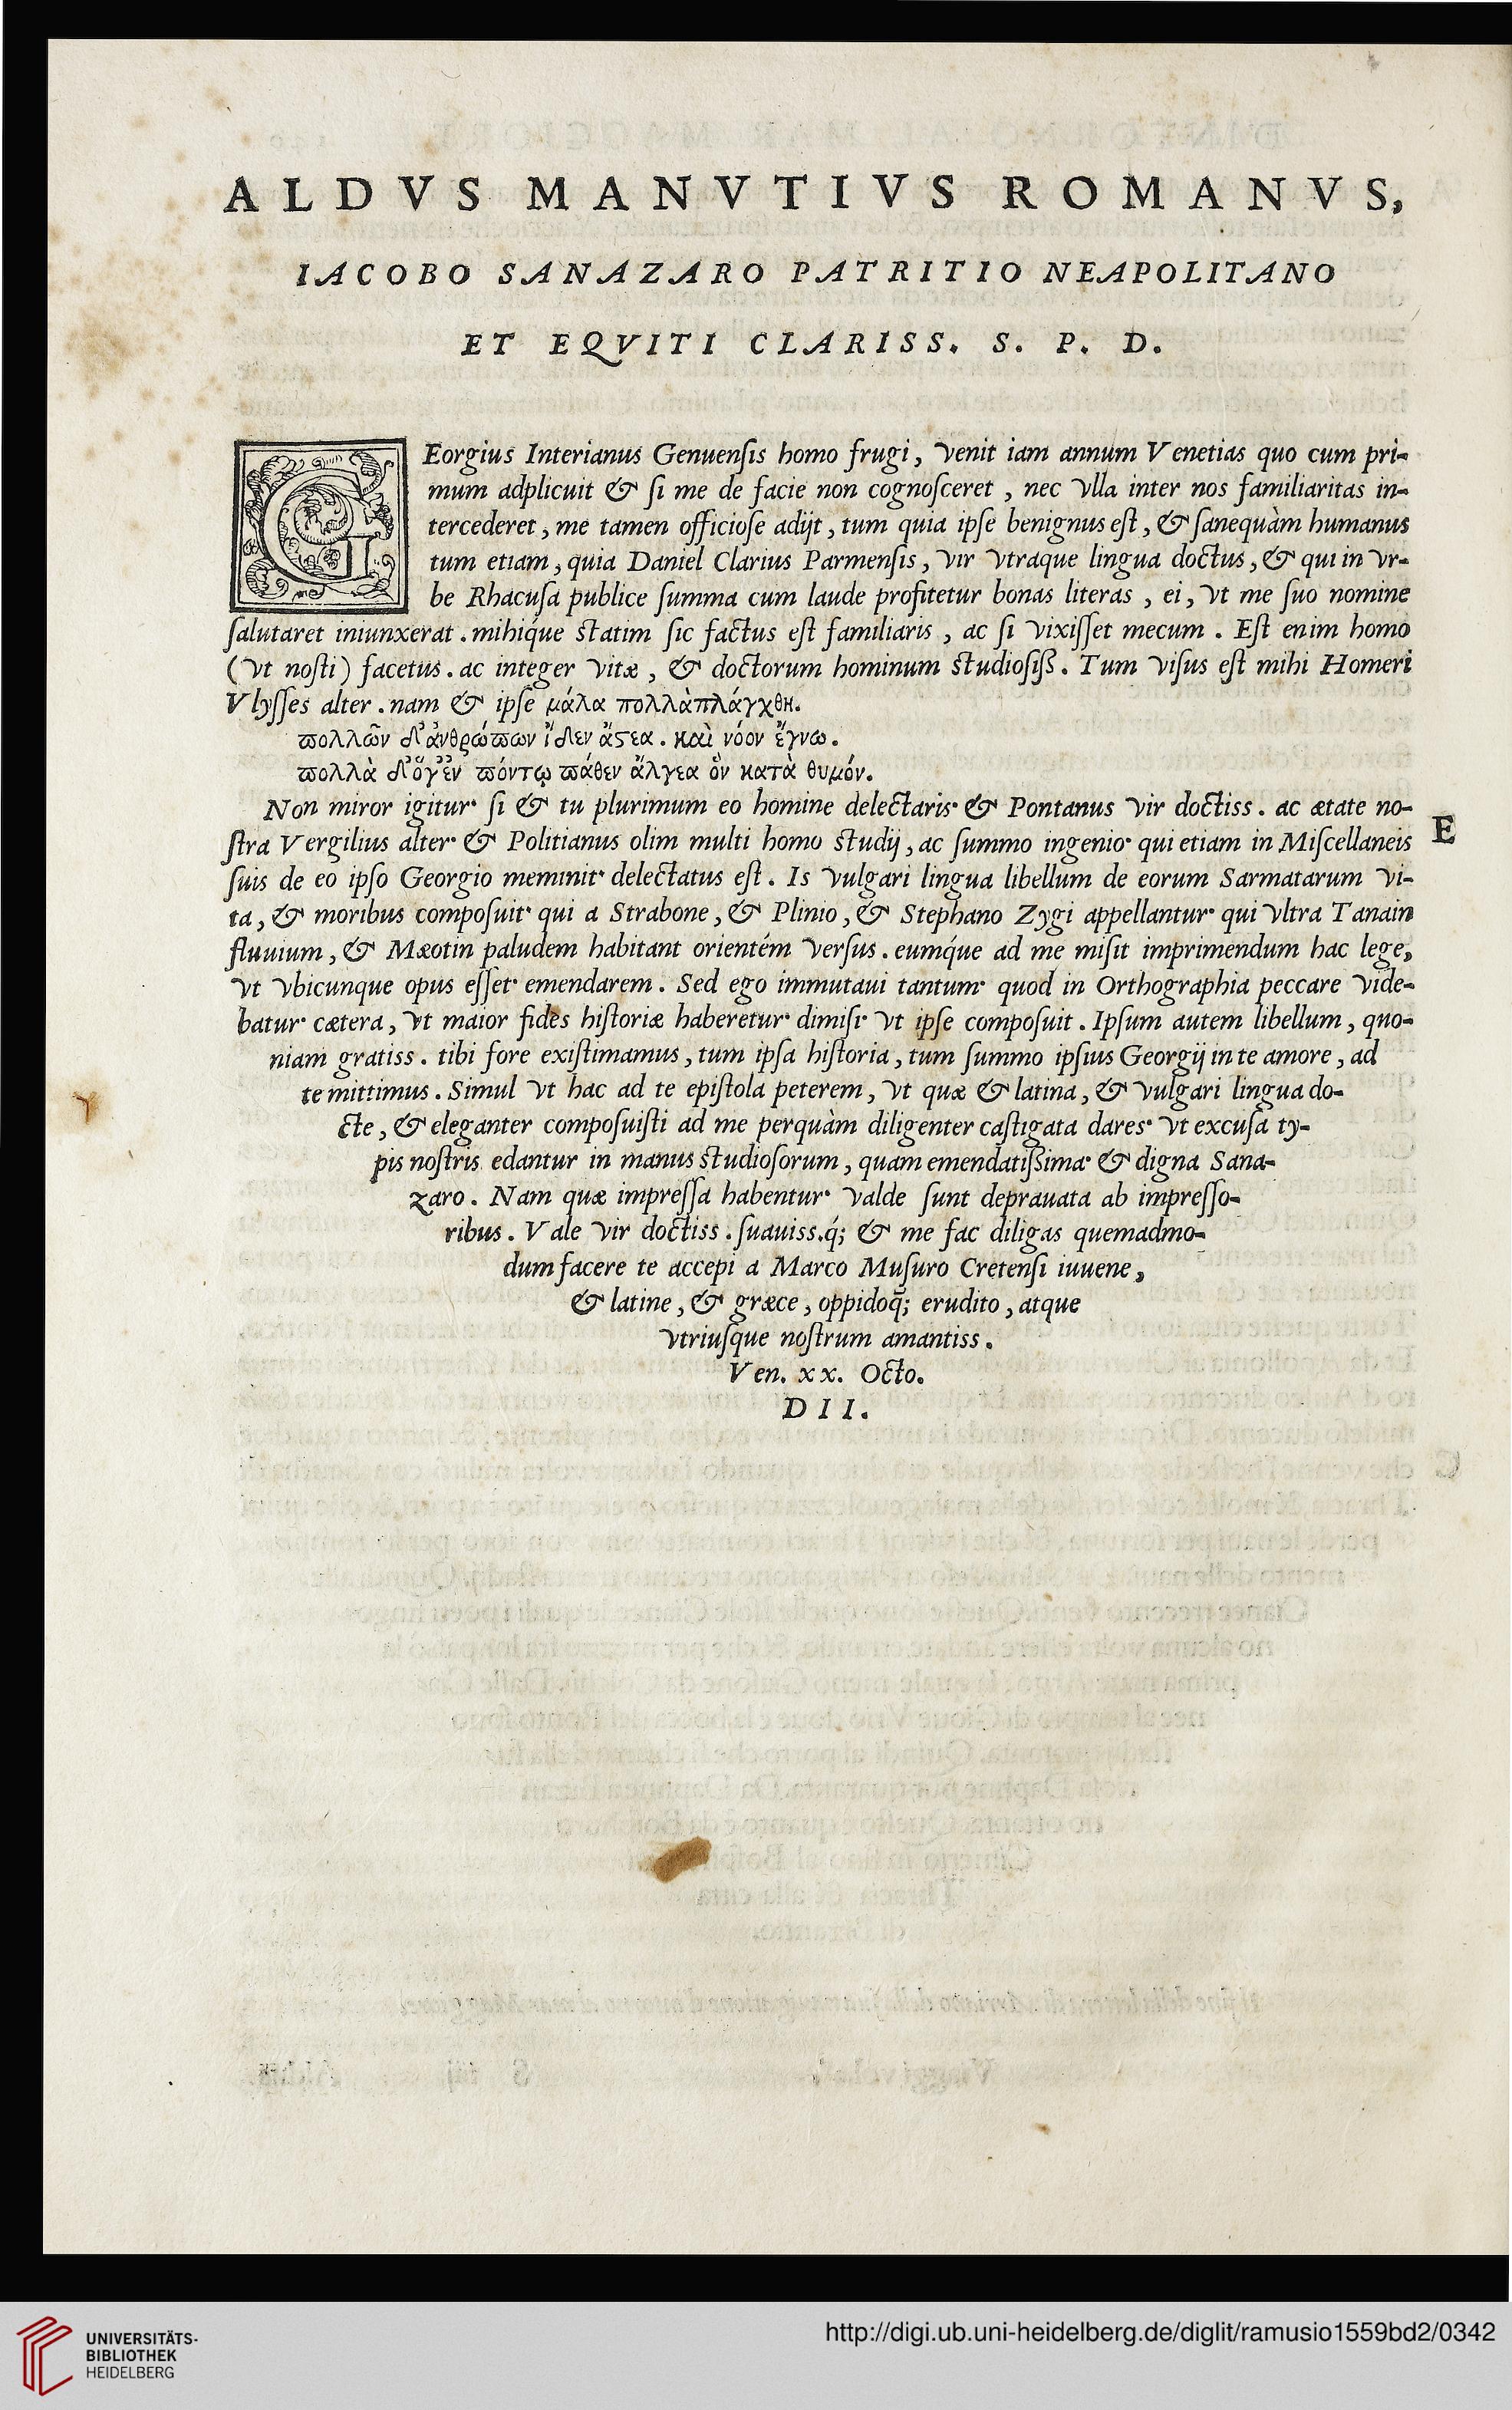 ALDVS MANVTIVS ROMANVS,
IACOBO SANAZARO PATRITIO NEAPOLITANO
ET EQVITI CLARISS. S. P. D.
GEorgius Interianus Genuenſis homo frugi, venit iam annum Venetias quo cum pri-
mum adplicuit & ſi me de facie non cognoſceret, nec vlla inter nos familiaritas in-
tercederet, me tamen officioſe adijt, tum quia ipſe benignus eſt, & ſanequàm humanus
tum etiam, quia Daniel Clarius Parmenſis, vir vtraque lingua doctus, & qui in vr-
be Rhacuſa publice ſumma cum laude profitetur bonas literas, ei, vt me ſuo nomine
ſalutaret iniunxerat. mihíque ſtatim ſic factus eſt familiaris, ac ſi vixiſſet mecum. Eſt enim homo
(vt noſti) facetus. ac integer vitæ, & doctorum hominum ſtudioſiß. Tum viſus eſt mihi Homeri
Vlyſſes alter. nam & ipſe μάλα πολλὰπλάγχθη.
πολλῶν δ᾽ἀνθρώπων ἴδεν ἄςεα. καὶ νόον ἔγνω.
πολλὰ δ᾽ὅγ᾽ἐν πόντῳ πάθεν ἄλγεα ὃν κατὰ θυμόν.
Non miror igitur· ſi & tu plurimum eo homine delectaris· & Pontanus vir doctiss. ac ætate no-
ſtra Vergilius alter· & Politianus olim multi homo ſtudij, ac ſummo ingenio· qui etiam in Miſcellaneis
E
ſuis de eo ipſo Georgio meminit· delectatus eſt. Is vulgari lingua libellum de eorum Sarmatarum vi-
ta, & moribus compoſuit· qui a Strabone, & Plinio, & Stephano Zygi appellantur· qui vltra Tanain
fluuium, & Mæotin paludem habitant orientém verſus. eumque ad me miſit imprimendum hac lege,
vt vbicunque opus eſſet· emendarem. Sed ego immutaui tantum· quod in Orthographia peccare vide-
batur· cætera, vt maior fides hiſtoriæ haberetur· dimiſi· vt ipſe compoſuit. Ipſum autem libellum, quo-
niam gratiss. tibi fore exiſtimamus, tum ipſa hiſtoria, tum ſummo ipſius Georgij in te amore, ad
te mittimus. Simul vt hac ad te epiſtola peterem, vt quæ & latina, & vulgari lingua do-
cte, & eleganter compoſuiſti ad me perquàm diligenter caſtigata dares· vt excuſa ty-
pis noſtris edantur in manus ſtudioſorum, quam emendatißima· & digna Sana-
zaro. Nam quæ impreſſa habentur· valde ſunt deprauata ab impreſſo-
ribus. Vale vir doctiss. ſuauiss.q́; & me fac diligas quemadmo-
dum facere te accepi a Marco Muſuro Cretenſi iuuene,
& latine, & græce, oppidoq̃; erudito, atque
vtriuſque noſtrum amantiss.
Ven. xx. Octo.
D I I.
UNIVERSITÄTS-
BIBLIOTHEK
HEIDELBERG
http://digi.ub.uni-heidelberg.de/diglit/ramusio1559bd2/0342